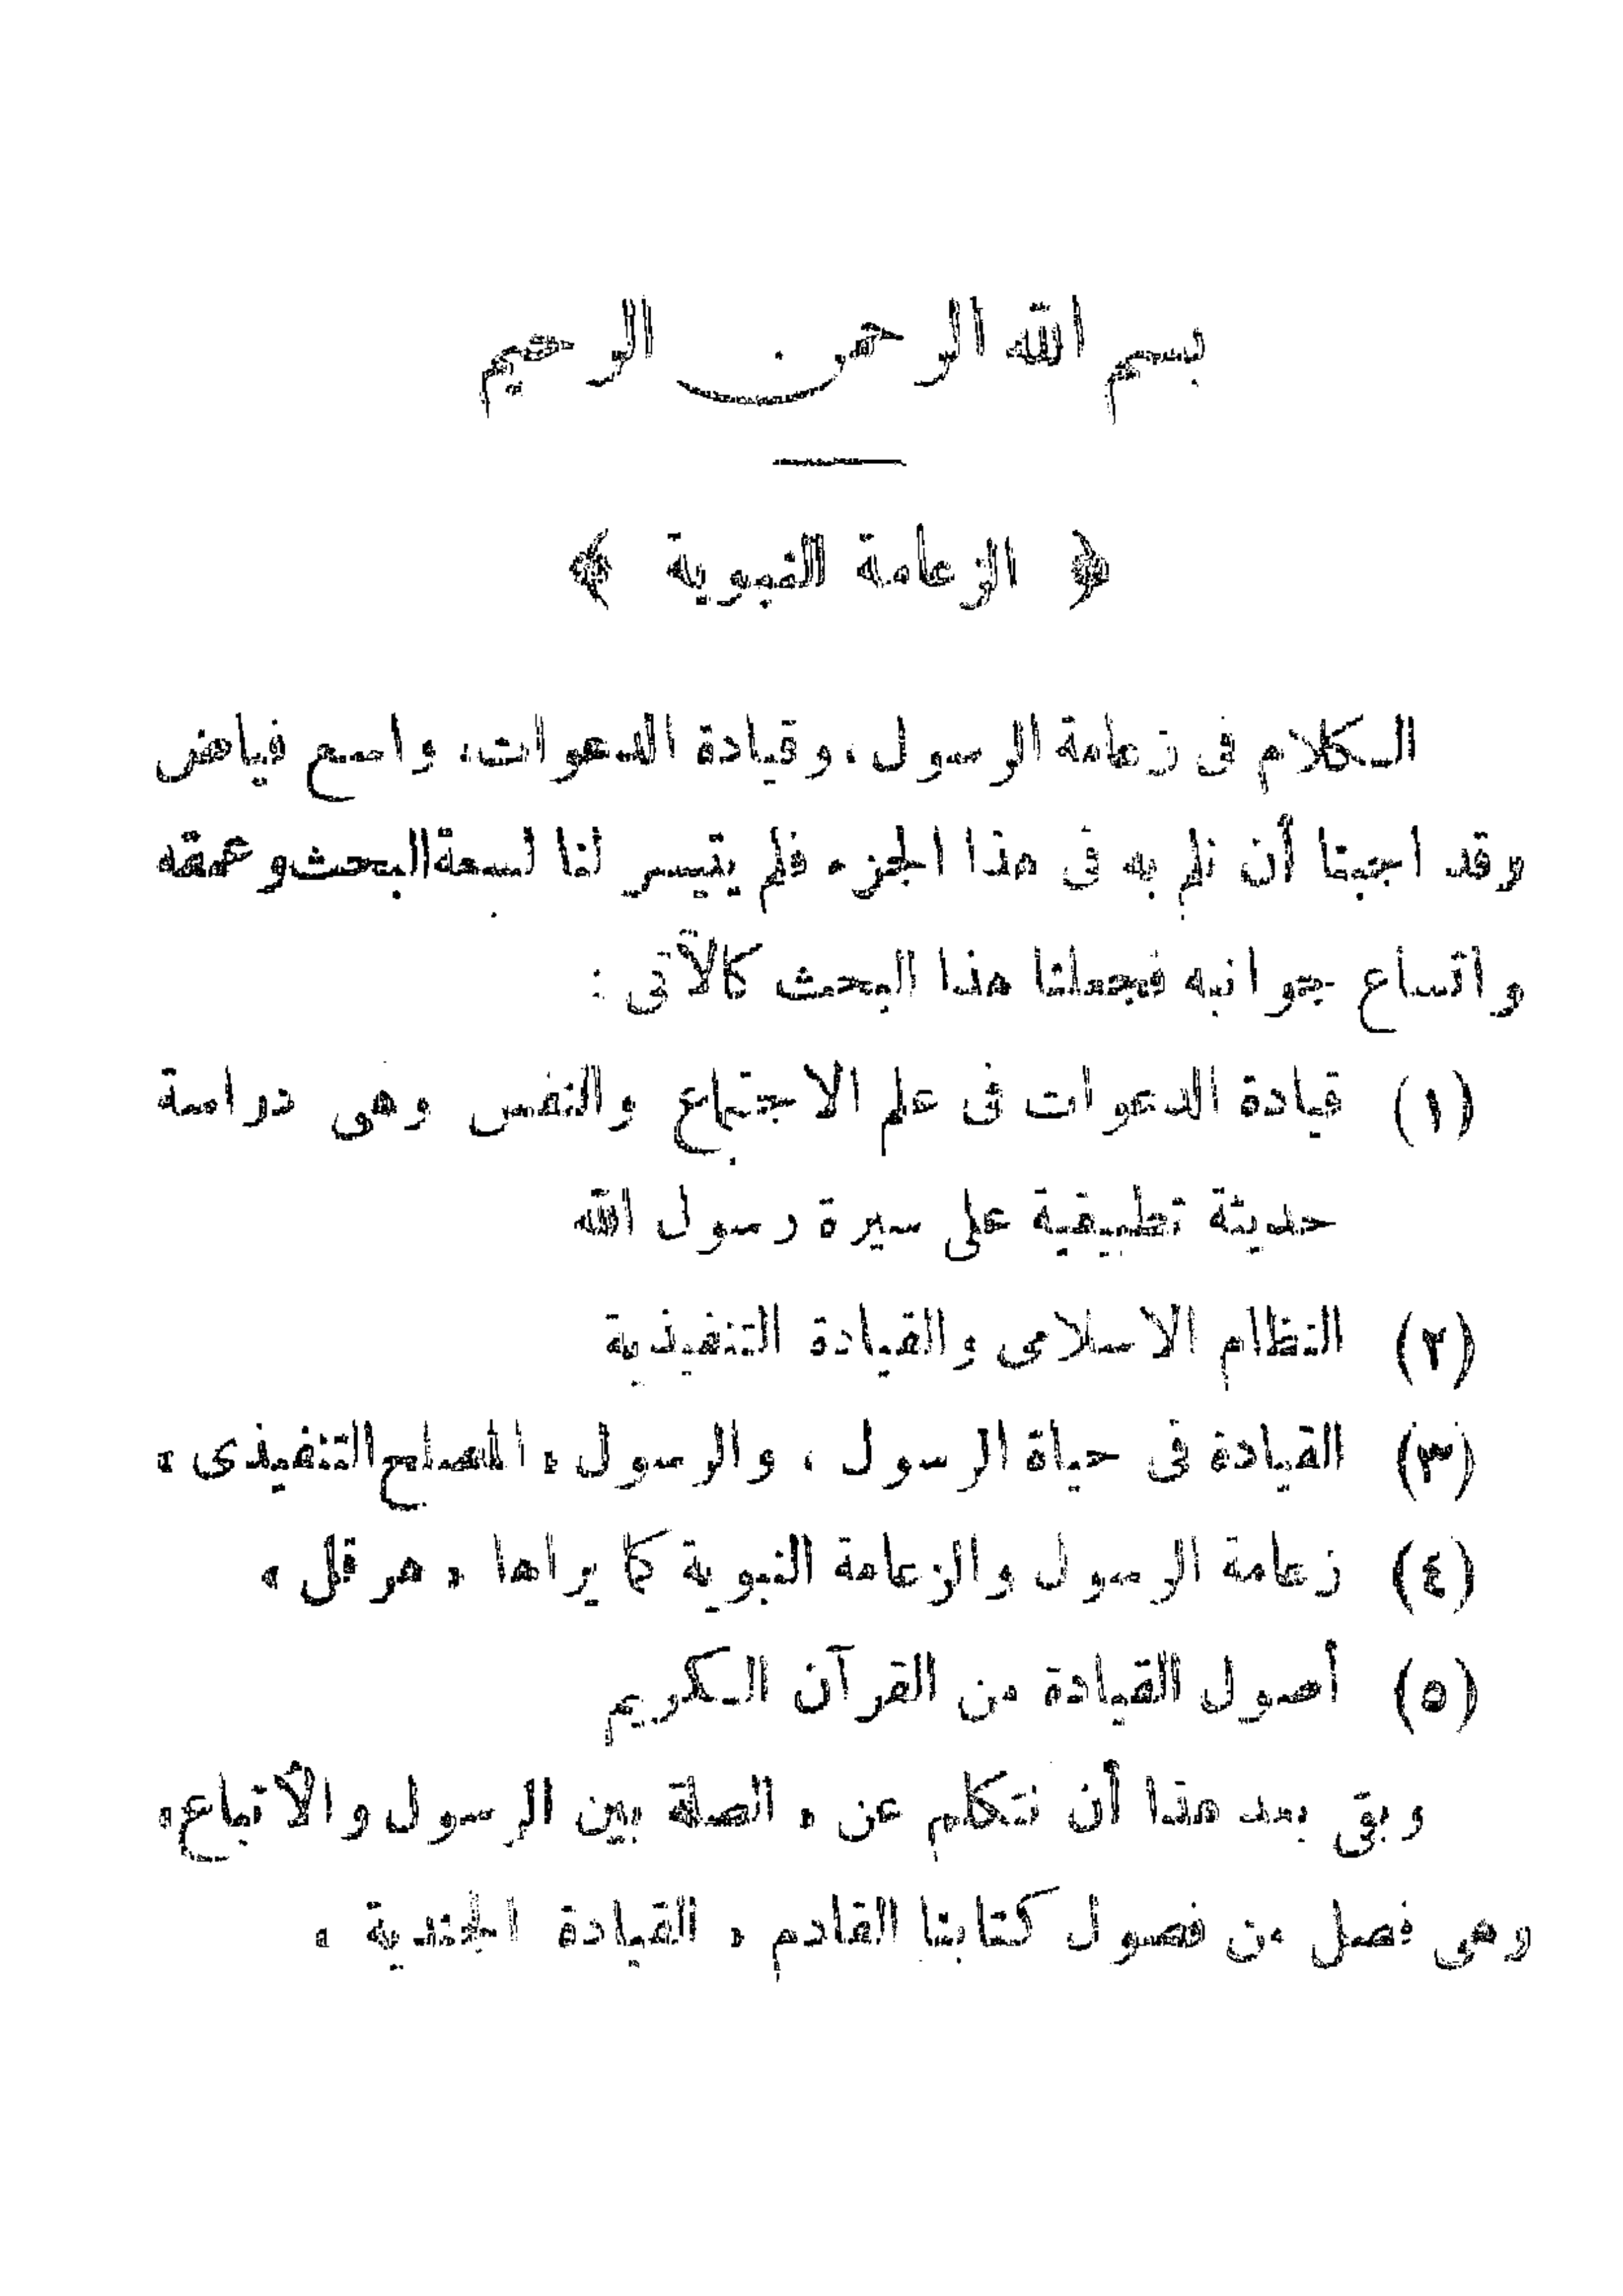 بسم الله الرحمن الرحيم
﴿ الزعامة النبوية ﴾
الكلام فى زعامة الرسول ، وقيادة الدعوات ، واسع فياض
وقد اجبنا أن نلم به فى هذا الجزء فلم يتيسر لنا لسعة البحث وعمقه
واتساع جوانبه فجعلنا هذا البحث كالآتى :
(١) قيادة الدعوات فى علم الاجتماع والنفس وهى دراسة
حديثة تطبيقية على سيرة رسول الله
(٢) النظام الاسلامى والقيادة التنفيذية
(٣) القيادة فى حياة الرسول ، والرسول « المصلح التنفيذى »
(٤) زعامة الرسول والزعامة النبوية كما يراها « هرقل »
(٥) أصول القيادة من القرآن الكريم
وبقى بعد هذا أن نتكلم عن « الصلة بين الرسول والأتباع »
وهى فصل من فصول كتابنا القادم « القيادة الجندية »